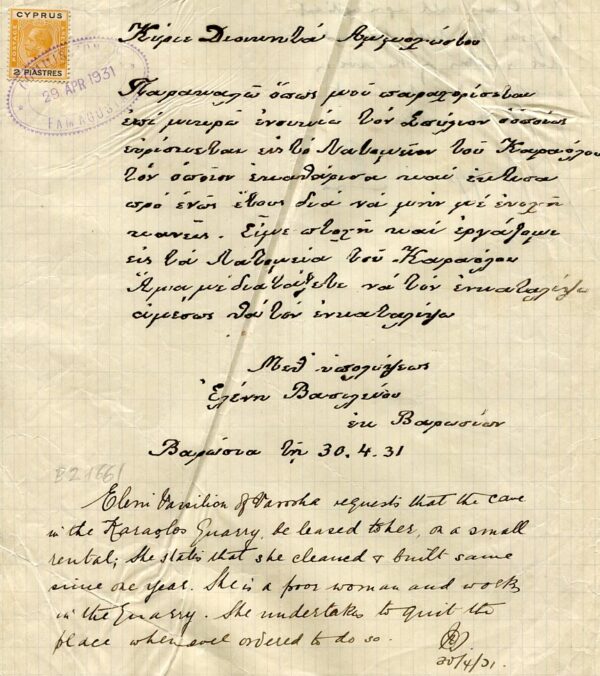 CYPRUS
2 PIASTRES
COMMISSIONER
29 APR 1931
FAMAGUSTA
Κύριε Διοικητά Αμμοχώστου
Παρακαλῶ ὅπως μοῦ παραχορίσεται
ἐπί μικρῷ ἐνοικίῳ τόν Σπήλιον ὁ ὁποῖος
εὑρίσκεται εἰς τό Λατομεῖον τοῦ Καραόλου
τόν ὁποῖον ἐκαθάρισα καί ἐκτισα
πρό ἑνός ἔτους διά νά μήν μέ ἐνοχλῆ
κανείς. Εἶμε πτοχή καί ἐργάζομε
εἰς τά Λατομεία τοῦ Καραόλου
Ἅμα μέ διατάξετε νά τόν ἐνκαταλίψω
ἀμέσως θα τόν ἐνκαταλίψω
Μεθ' ὑπολήψεως
Ἑλένη Βασιλείου
ἐκ Βαρωσίων
Βαρώσια τῇ 30.4.31
B21661
Eleni Vassiliou of Varosha requests that the cave
in the Karaolos Quarry, be leased to her, on a small
rental; She states that she cleaned & built same
since one year. She is a poor woman and works
in the Quarry. She undertakes to quit the
place whenever ordered to do so.
30/4/31.